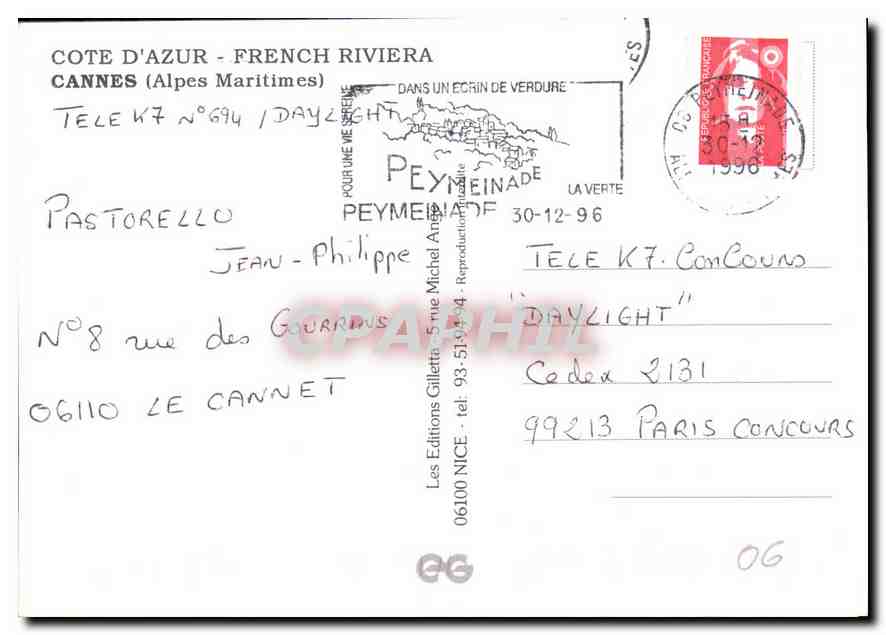 COTE D'AZUR - FRENCH RIVIERA
CANNES (Alpes Maritimes)
TELE K7 N°694 / DAYLIGHT
POUR UNE VIE SEREINE
DANS UN ECRIN DE VERDURE
PEYMEINADE
LA VERTE
PEYMEINADE 30-12-96
REPUBLIQUE FRANÇAISE
LA POSTE
06 PEYMEINADE
15 H
30-12
1996
PASTORELLO
JEAN-Philippe
N°8 rue des
06110 LE CANNET
Les Editions Gilletta - 5 rue Michel Ange
06100 NICE - tel: 93-51-94-94 - Reproduction interdite
TELE K7. ConCours
"DAYLIGHT"
Cedex 2131
99213 PARIS CONCOURS
CPAPHIL
GG
06